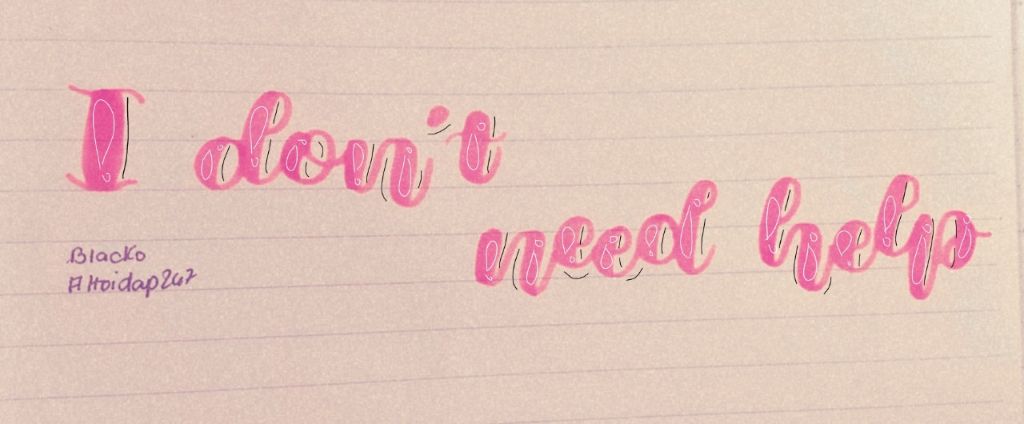 I don't
need help
Blacko
#Hoidap247